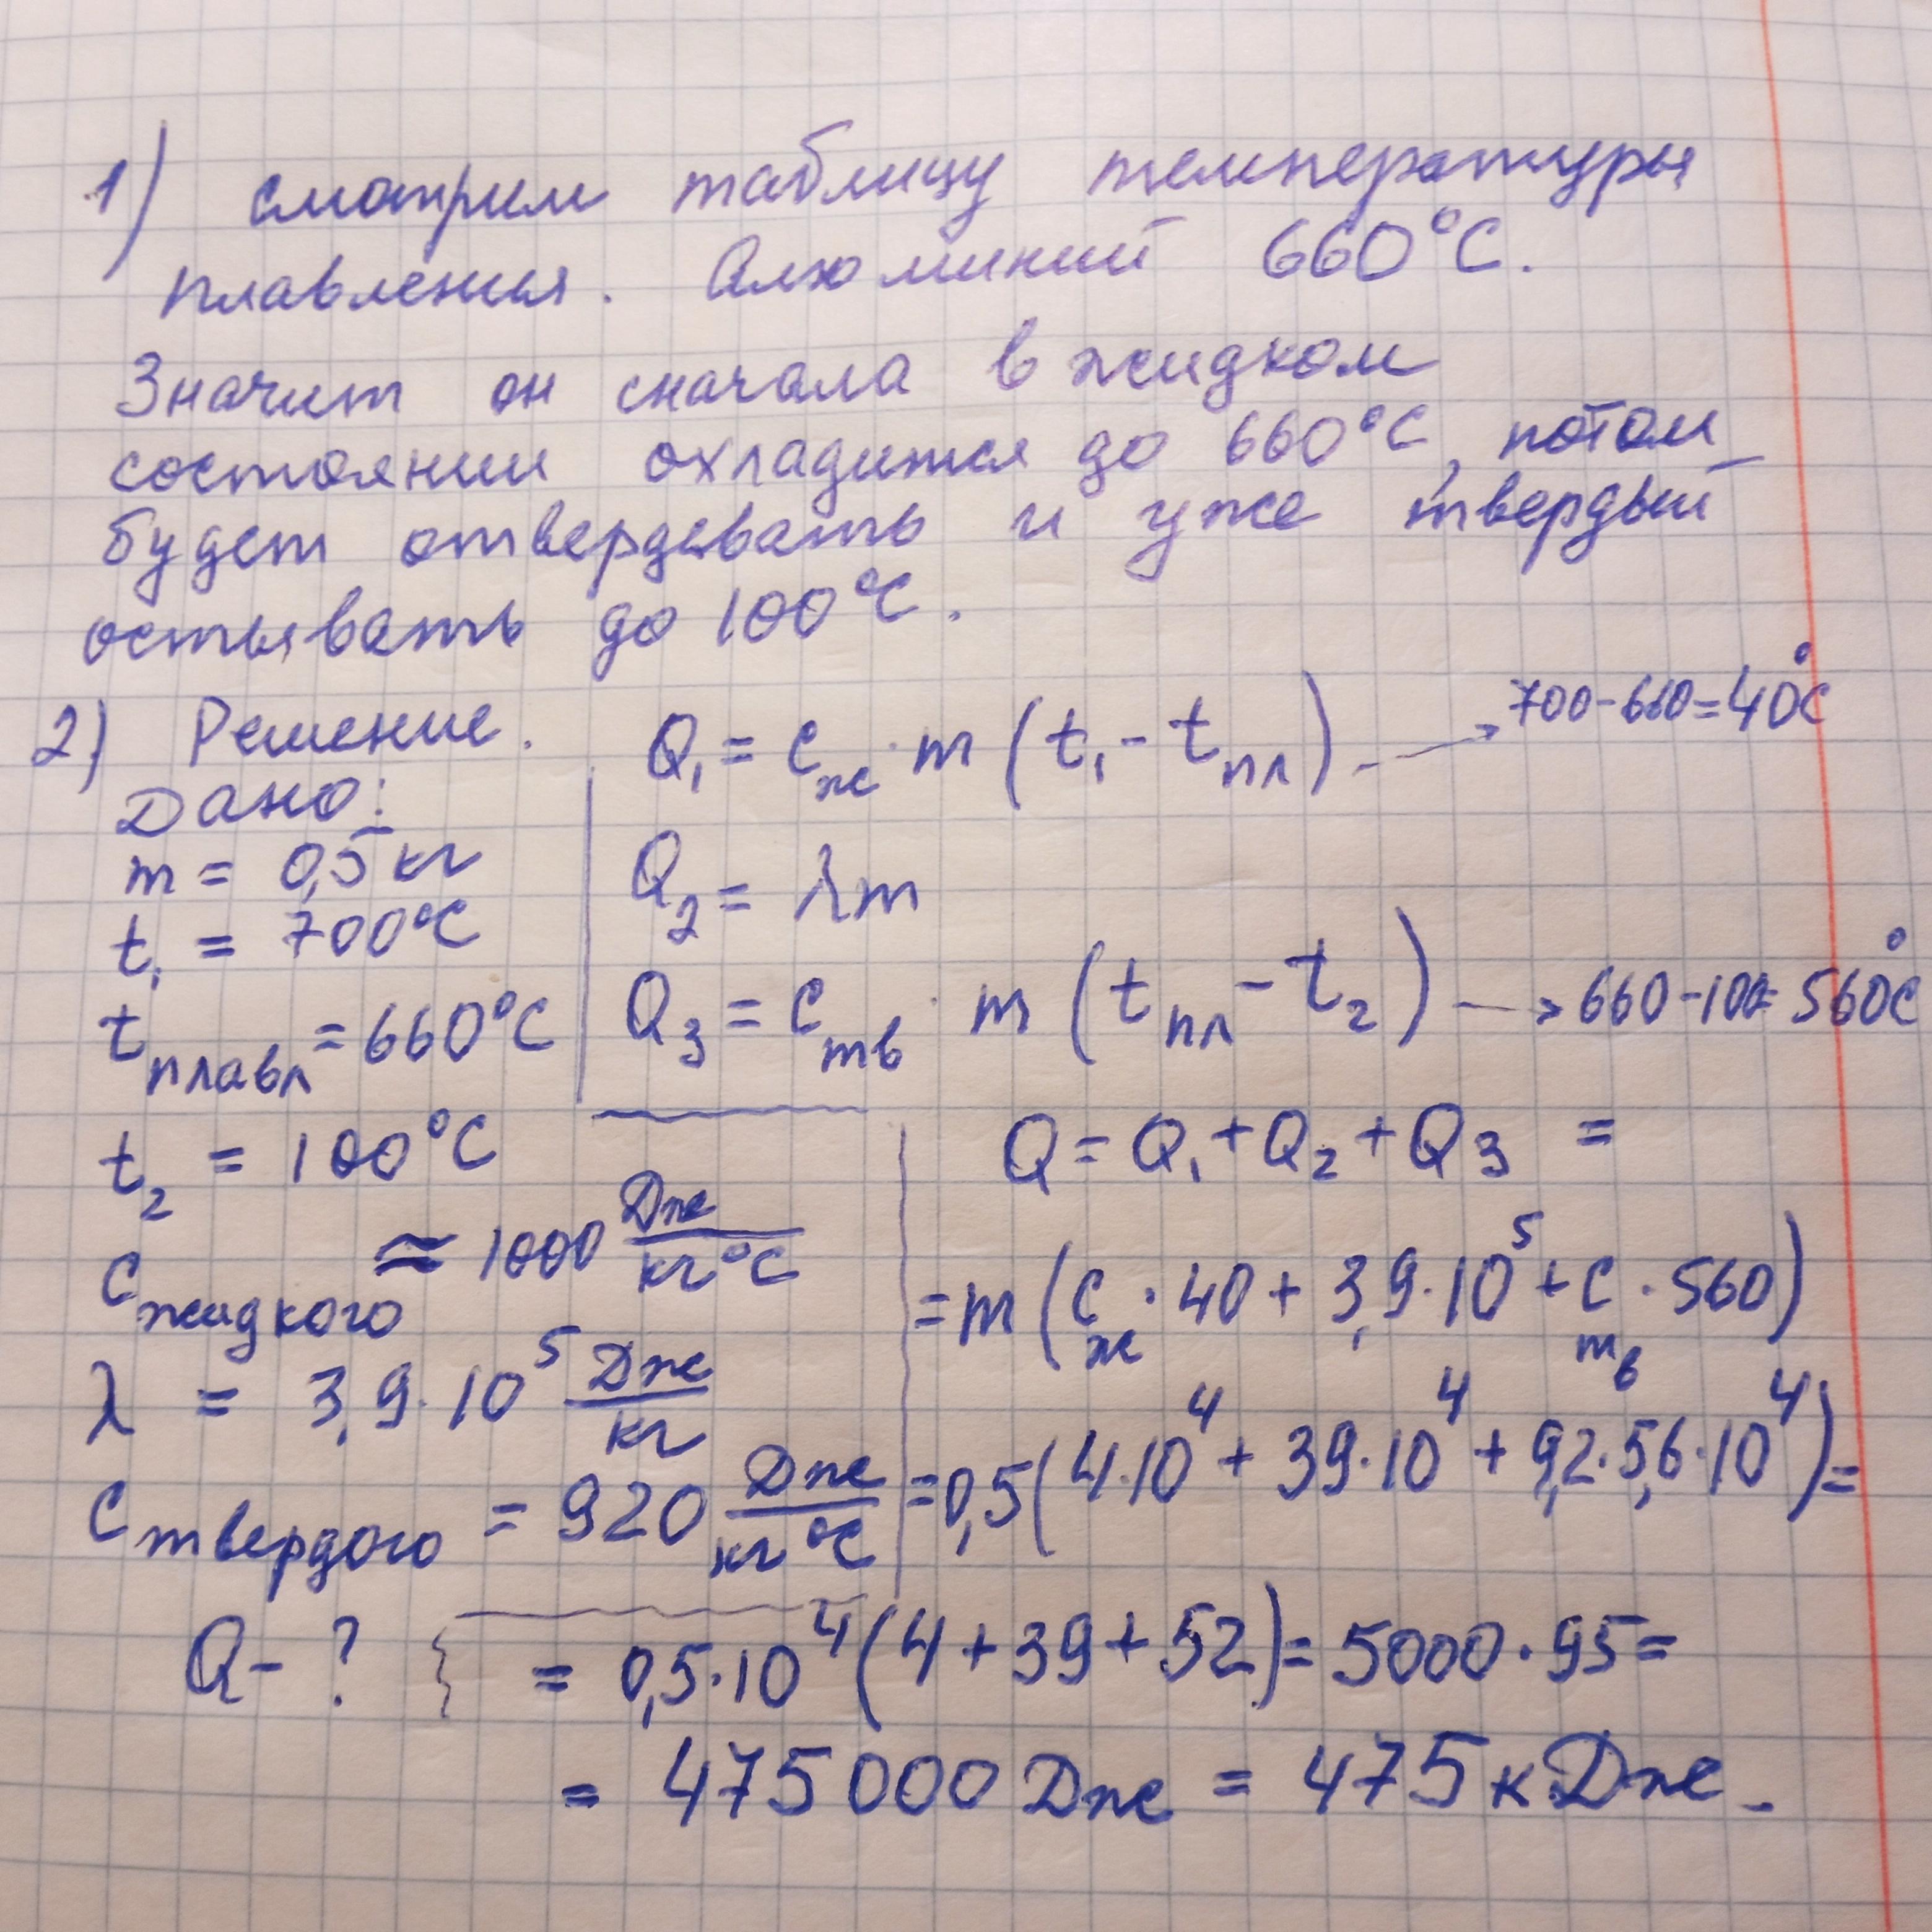 1) смотрим таблицу температуры
плавления. Алюминий 660°C.
Значит он сначала в жидком
состоянии охладится до 660°C, потом
будет отвердевать и уже твердый
остывать до 100°C.
2) Решение.
Дано:
m = 0,5 кг
t₁ = 700°C
t плавл = 660°C
t₂ = 100°C
C жидкого ≈ 1000 Дж/кг°C
λ = 3,9·10⁵ Дж/кг
C твердого = 920 Дж/кг°C
Q - ?
Q₁ = C ж · m (t₁ - t пл) --> 700-660=40°C
Q₂ = λm
Q₃ = C тв · m (t пл - t₂) --> 660-100= 560°C
Q = Q₁ + Q₂ + Q₃ =
= m (C ж · 40 + 3,9·10⁵ + C тв · 560)
= 0,5(4·10⁴ + 39·10⁴ + 9,2·5,6·10⁴) =
= 0,5·10⁴(4+39+52)= 5000·95=
= 475000 Дж = 475 кДж.